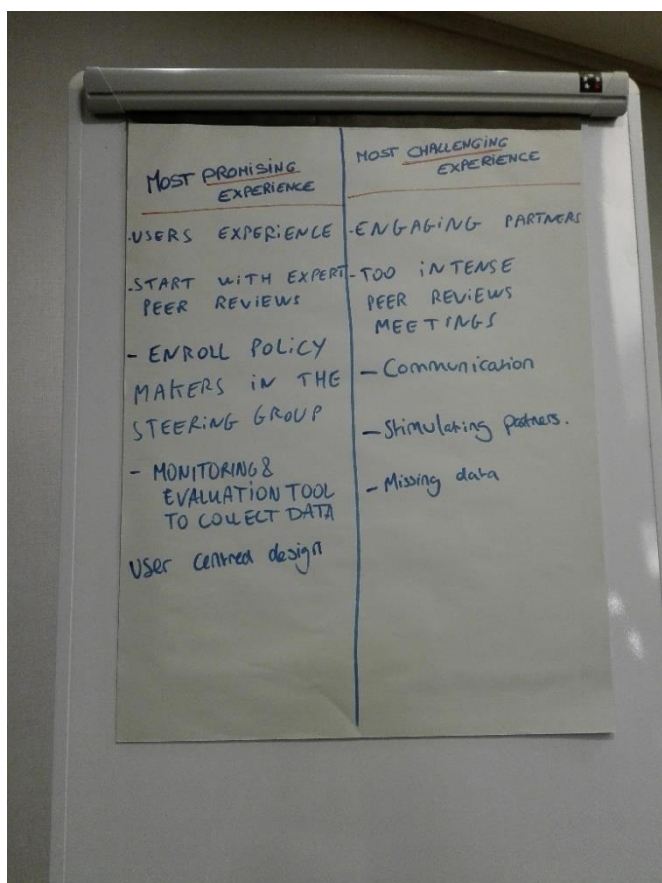 MOST PROMISING
EXPERIENCE
.USERS EXPERIENCE
.START WITH EXPERT
PEER REVIEWS
- ENROLL POLICY
MAKERS IN THE
STEERING GROUP
- MONITORING &
EVALUATION TOOL
TO COLLECT DATA
User centred design
MOST CHALLENGING
EXPERIENCE
. ENGAGING PARTNERS
- TOO INTENSE
PEER REVIEWS
MEETINGS
- Communication
- Stimulating partners.
- Missing data